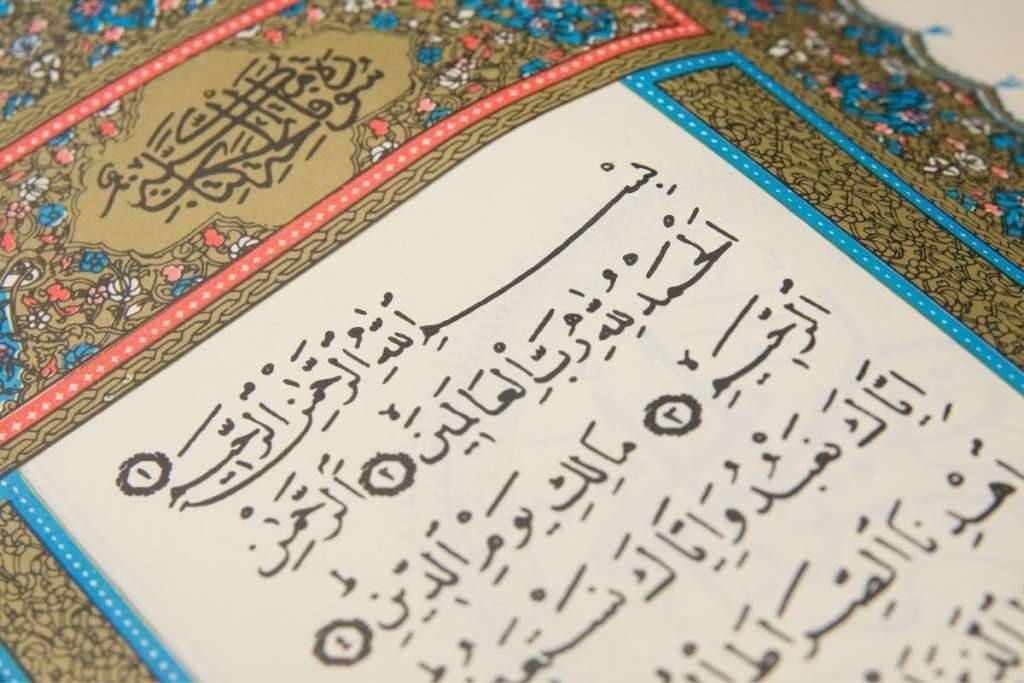 سورة فاتحة الكتاب
بِسْمِ ٱللّٰهِ ٱلرَّحْمٰنِ ٱلرَّحِيمِ ١
اَلْحَمْدُ لِلّٰهِ رَبِّ ٱلْعَالَمِينَۙ ٢ اَلرَّحْمٰنِ
ٱلرَّحِيمِۙ ٣ مَالِكِ يَوْمِ ٱلدِّينِۜ ٤
اِيَّاكَ نَعْبُدُ وَاِيَّاكَ نَسْتَعِينُ
اِهْدِنَا ٱلصِّرَاطَ